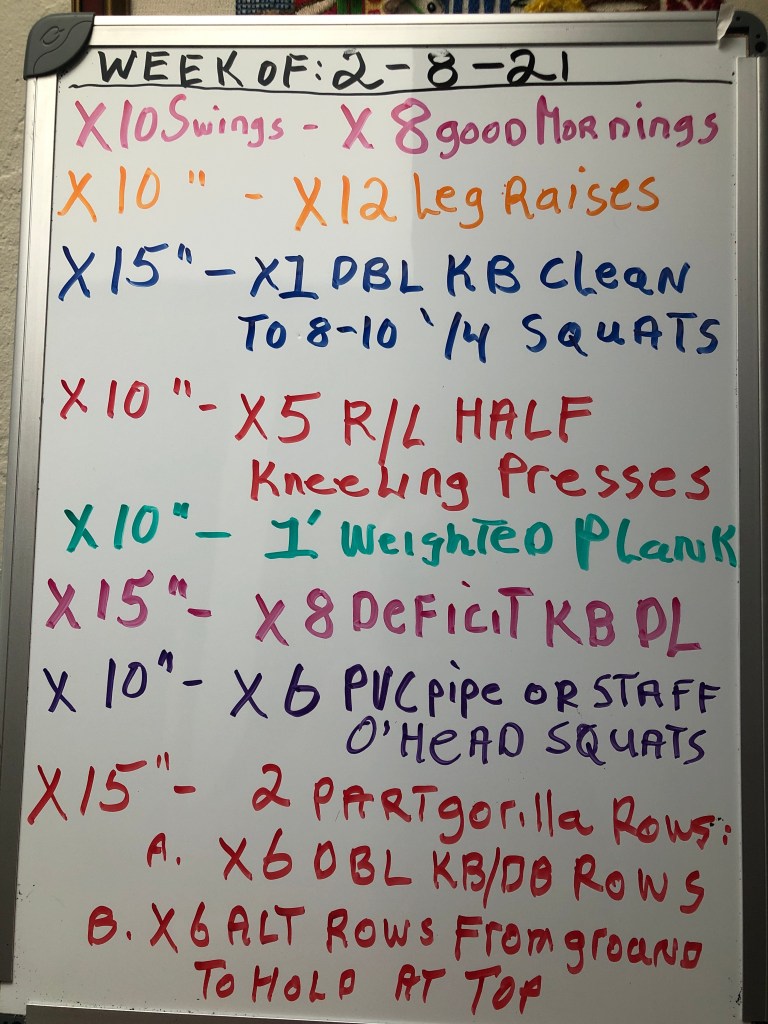 WEEK OF: 2-8-21
X10 Swings - X 8 gooD MoRnings
X 10 " - X12 Leg Raises
X 15" - X1 DBL KB CleaN
TO 8-10 1/4 SQUATS
X 10 " - X5 R/L HALF
Kneeling Presses
X10" - 1' WeighTED PLaNK
X 15" - X 8 DeFiciT KB DL
X 10" - X 6 PVC pipe OR STAFF
O'HeAD SQUATS
X 15" - 2 PARTgorilla Rows:
A. X6 DBL KB/DB ROWS
B. X6 ALT Rows From grounD
To HOLD AT TOP